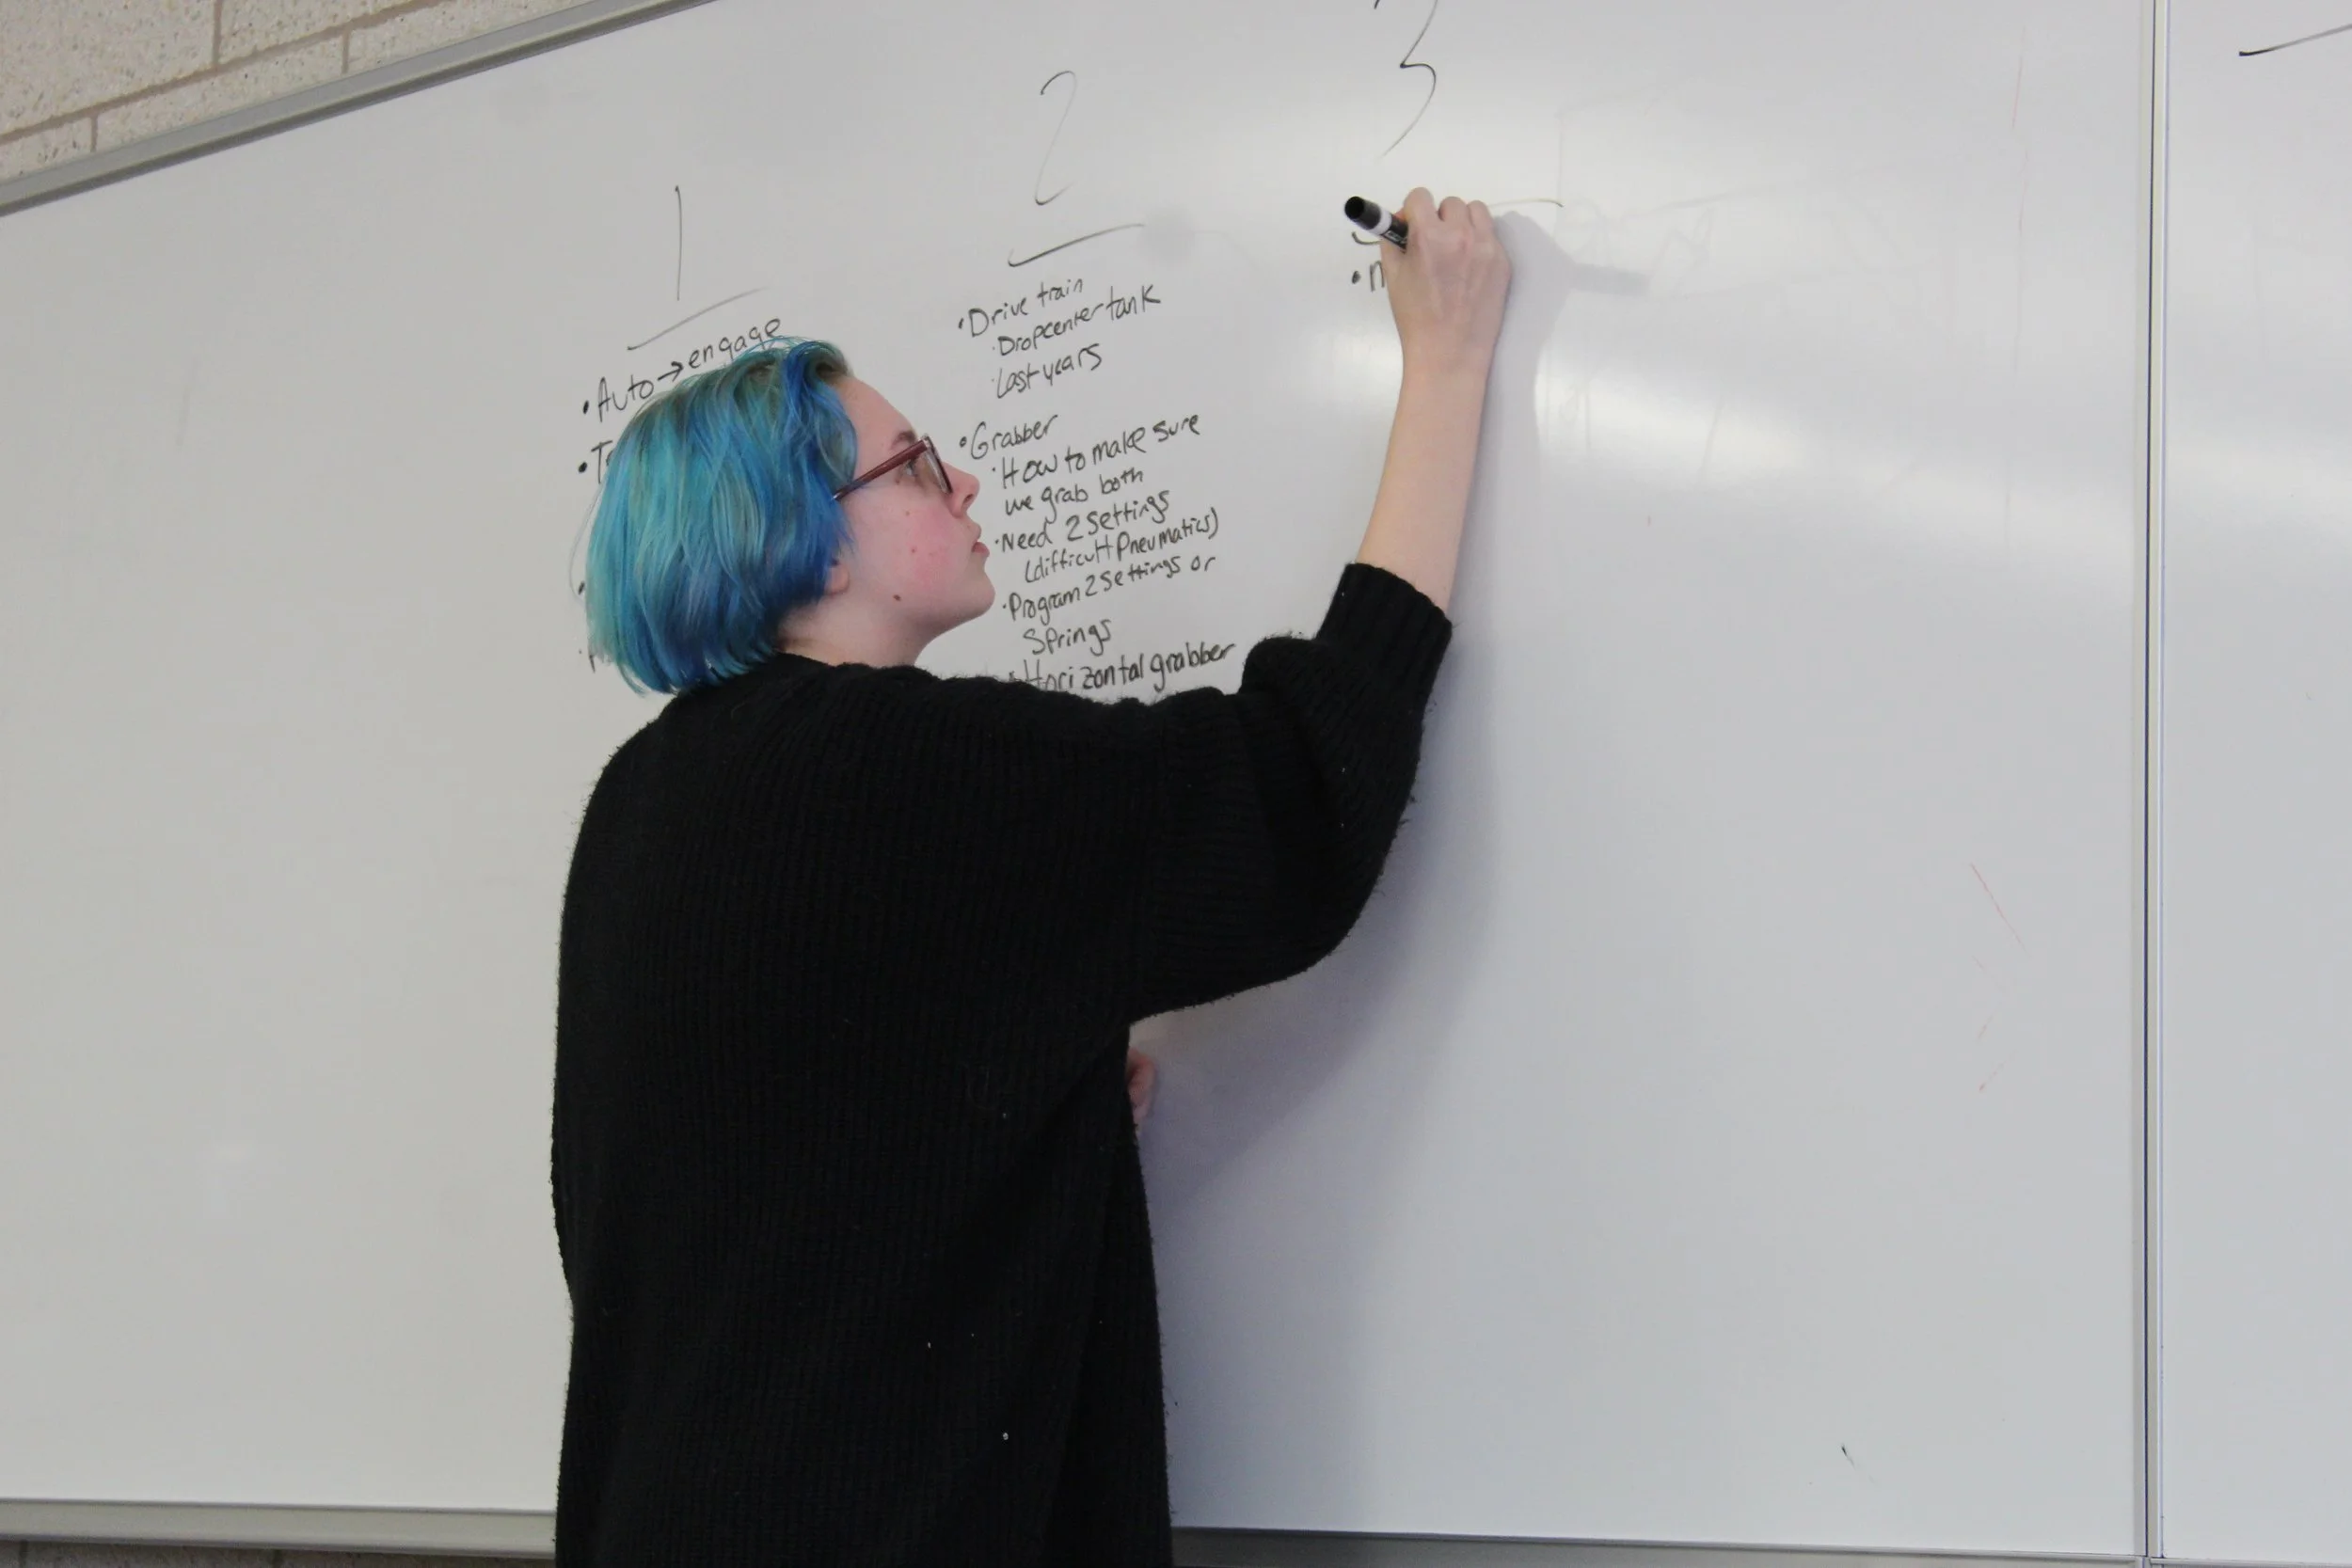 1
• Auto → engage
2
• Drive train
· Dropcenter tank
· Last years
• Grabber
· How to make sure
we grab both
· Need 2 settings
(difficult pneumatics)
· Program 2 settings or
Springs
• Horizontal grabber
3